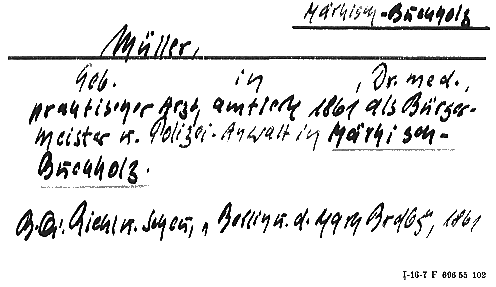 Märkisch-Buchholz
Müller,
Geb. in , Dr. med.,
praktischer Arzt, amtierte 1861 als Bürger-
meister u. Polizei-Anwalt in Märkisch-
Buchholz.
Riehl u. Scheu, „Berlin u. d. Mark Brdbg", 1861
I-16-7 F 696 55 102